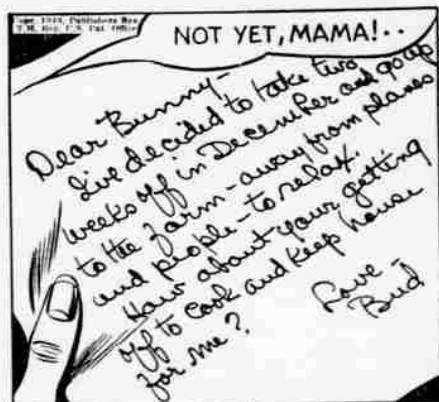 Copr. 1943, Publishers Syn.
T.M. Reg. U.S. Pat. Office
NOT YET, MAMA!..
Dear Bunny-
I've decided to take two
weeks off in December and go up
to the farm - away from planes
and people - to relax.
How about your getting
off to cook and keep house
for me?
Love -
Bud